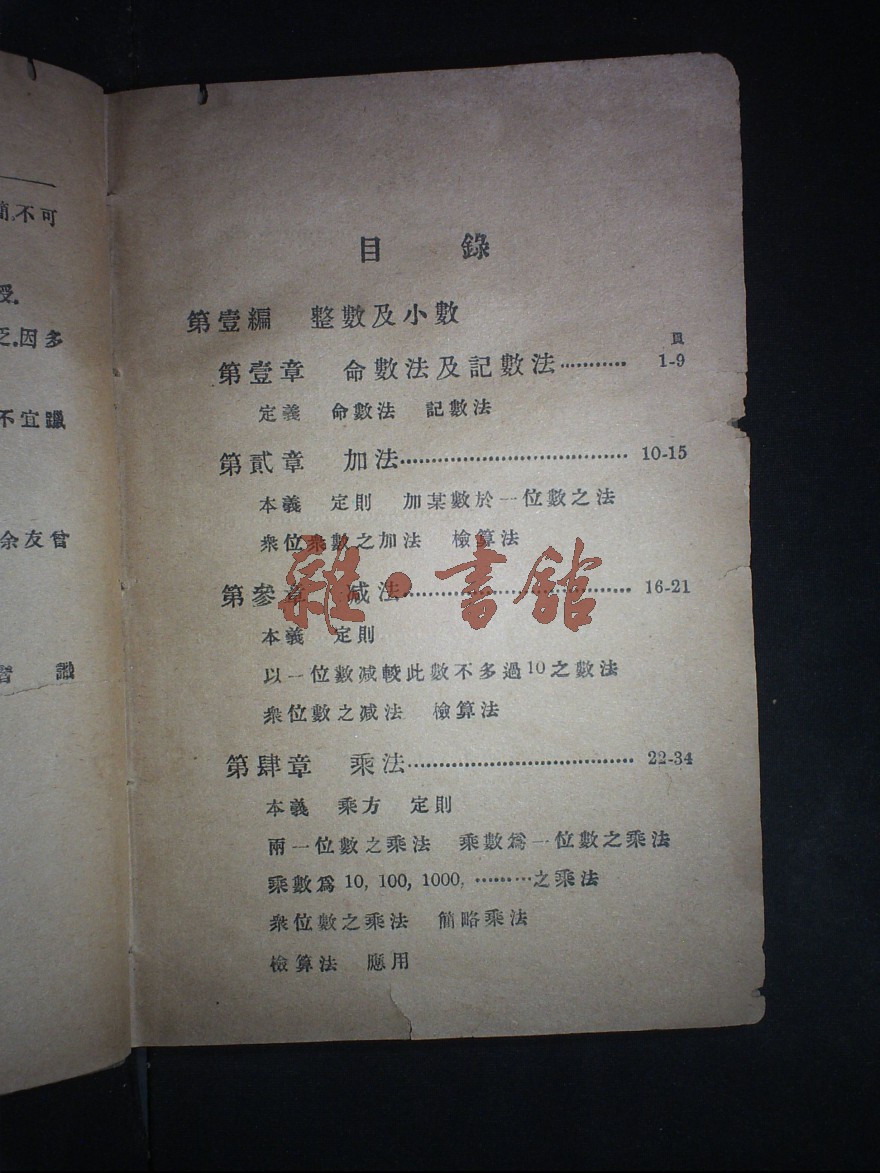 簡.不可
授.
乏.因多
不宜躐
余友曾
識
目 錄
第壹編 整數及小數
頁
第壹章 命數法及記數法………… 1-9
定義 命數法 記數法
第貳章 加法………………………………… 10-15
本義 定則 加某數於一位數之法
衆位衆數之加法 檢算法
雜·書館
第參章 减法………………………………… 16-21
本義 定則
以一位數减較此數不多過10之數法
衆位數之减法 檢算法
第肆章 乘法………………………………… 22-34
本義 乘方 定則
兩一位數之乘法 乘數爲一位數之乘法
乘數爲 10, 100, 1000, ………之乘法
衆位數之乘法 簡略乘法
檢算法 應用